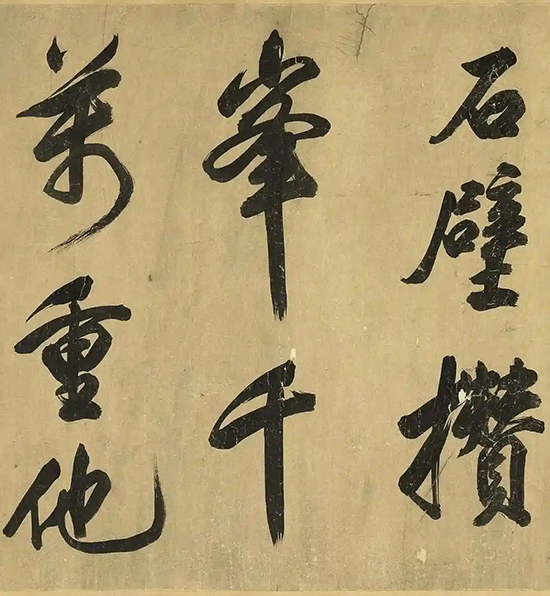 石壁攢
峯千
萬重他